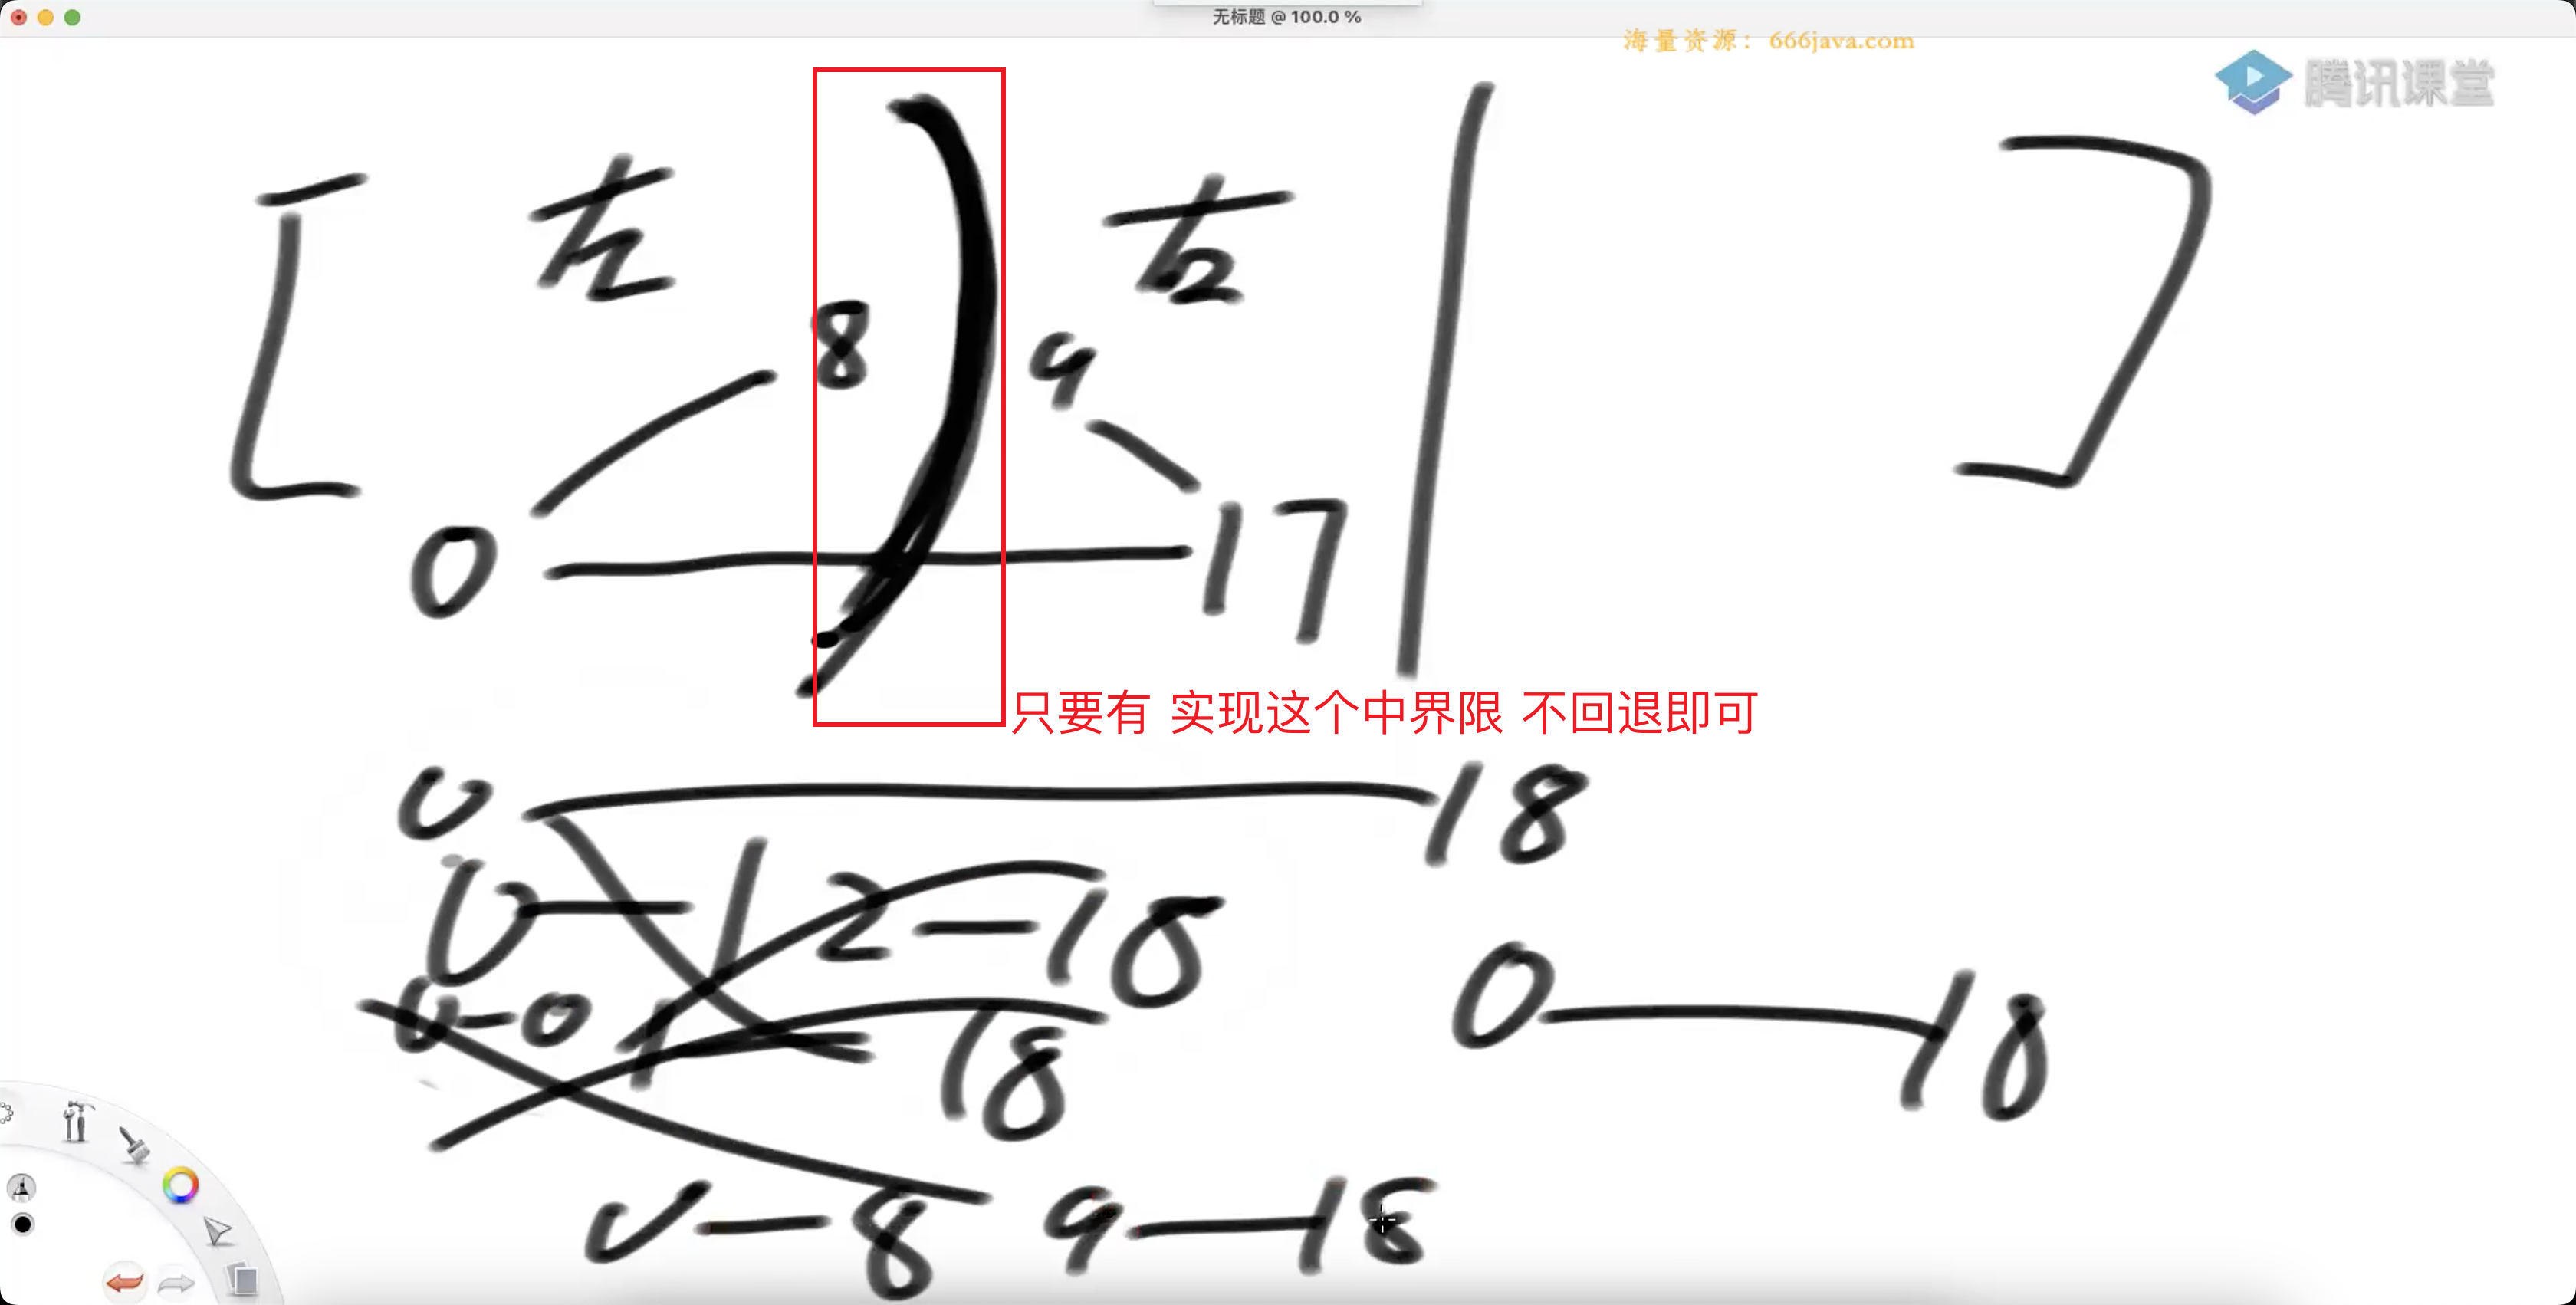 无标题 @ 100.0 %
海量资源：666java.com
腾讯课堂
左 右
8 9
0 17
只要有 实现这个中界限 不回退即可
0 18
0-1 2-18
0-0 1-18
0-18
0-8 9-18